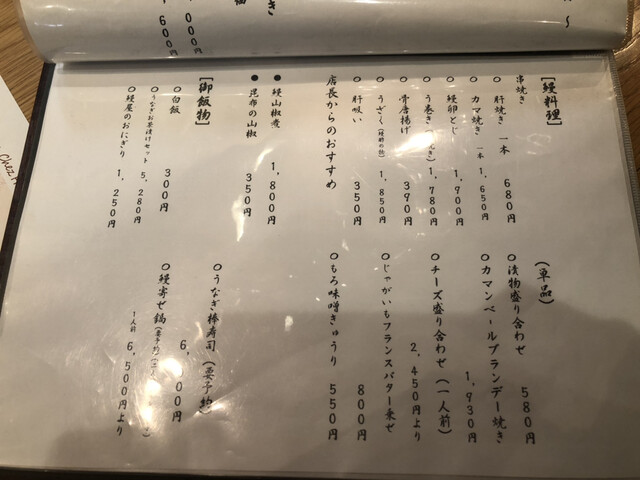 【鰻料理】
串焼き
○肝焼き 一本 680円
○カマ焼き 一本 1,650円
○鰻卵とじ 1,900円
○う巻き 1,780円
○骨唐揚げ 390円
○うざく 1,850円
○肝吸い 350円
店長からのおすすめ
●鰻山椒煮 1,800円
●昆布の山椒 350円
【御飯物】
○白飯 300円
○うなぎお茶漬けセット 5,280円
○鰻屋のおにぎり 1,250円
(単品)
○漬物盛り合わせ 580円
○カマンベールブランデー焼き 1,930円
○チーズ盛り合わせ(一人前) 2,450円より
○じゃがいもフランスバター乗せ 800円
○もろ味噌きゅうり 550円
○うなぎ棒寿司(要予約)
○鰻寄せ鍋
1人前 6,500円より
600円
000円
Chez